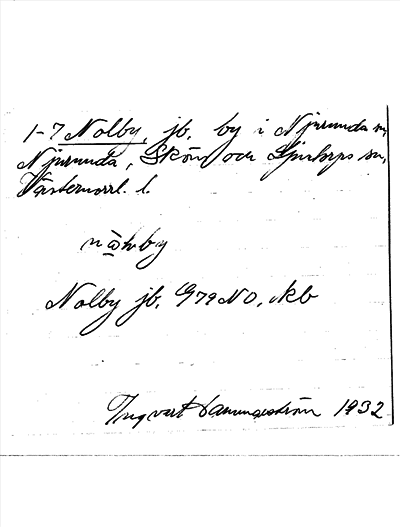 1-7 Nolby, jb, by i Njurunda sn,
Njurunda, Sköns och Ljustorps sn,
Västernorrl. l.
Nolby jb. G79 NO, Akb
Ingvart 1932